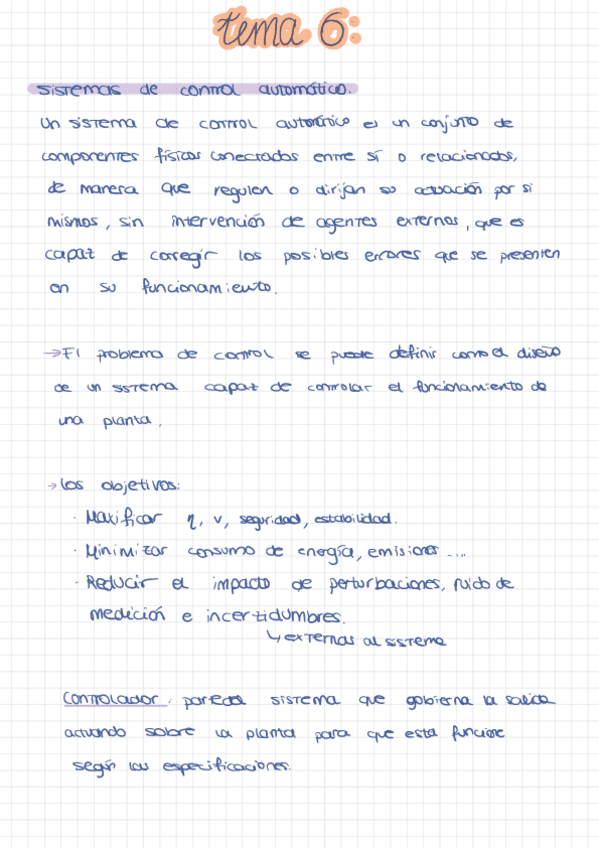 tema 6:
sistemas de control automático.
Un sistema de control automático es un conjunto de
componentes físicos conectados entre sí o relacionados,
de manera que regulen o dirijan su actuación por si
mismos, sin intervención de agentes externos, que es
capaz de corregir los posibles errores que se presenten
en su funcionamiento.
→ El problema de control se puede definir como el diseño
de un sistema capaz de controlar el funcionamiento de
una planta.
→ los objetivos:
· Maxificar η, v, seguridad, estabilidad.
· Minimizar consumo de energía, emisiones ...
· Reducir el impacto de perturbaciones, ruido de
medición e incertidumbres.
↳ externas al sistema
Controlador: parte del sistema que gobierna la salida
actuando sobre la planta para que esta funcione
según las especificaciones.